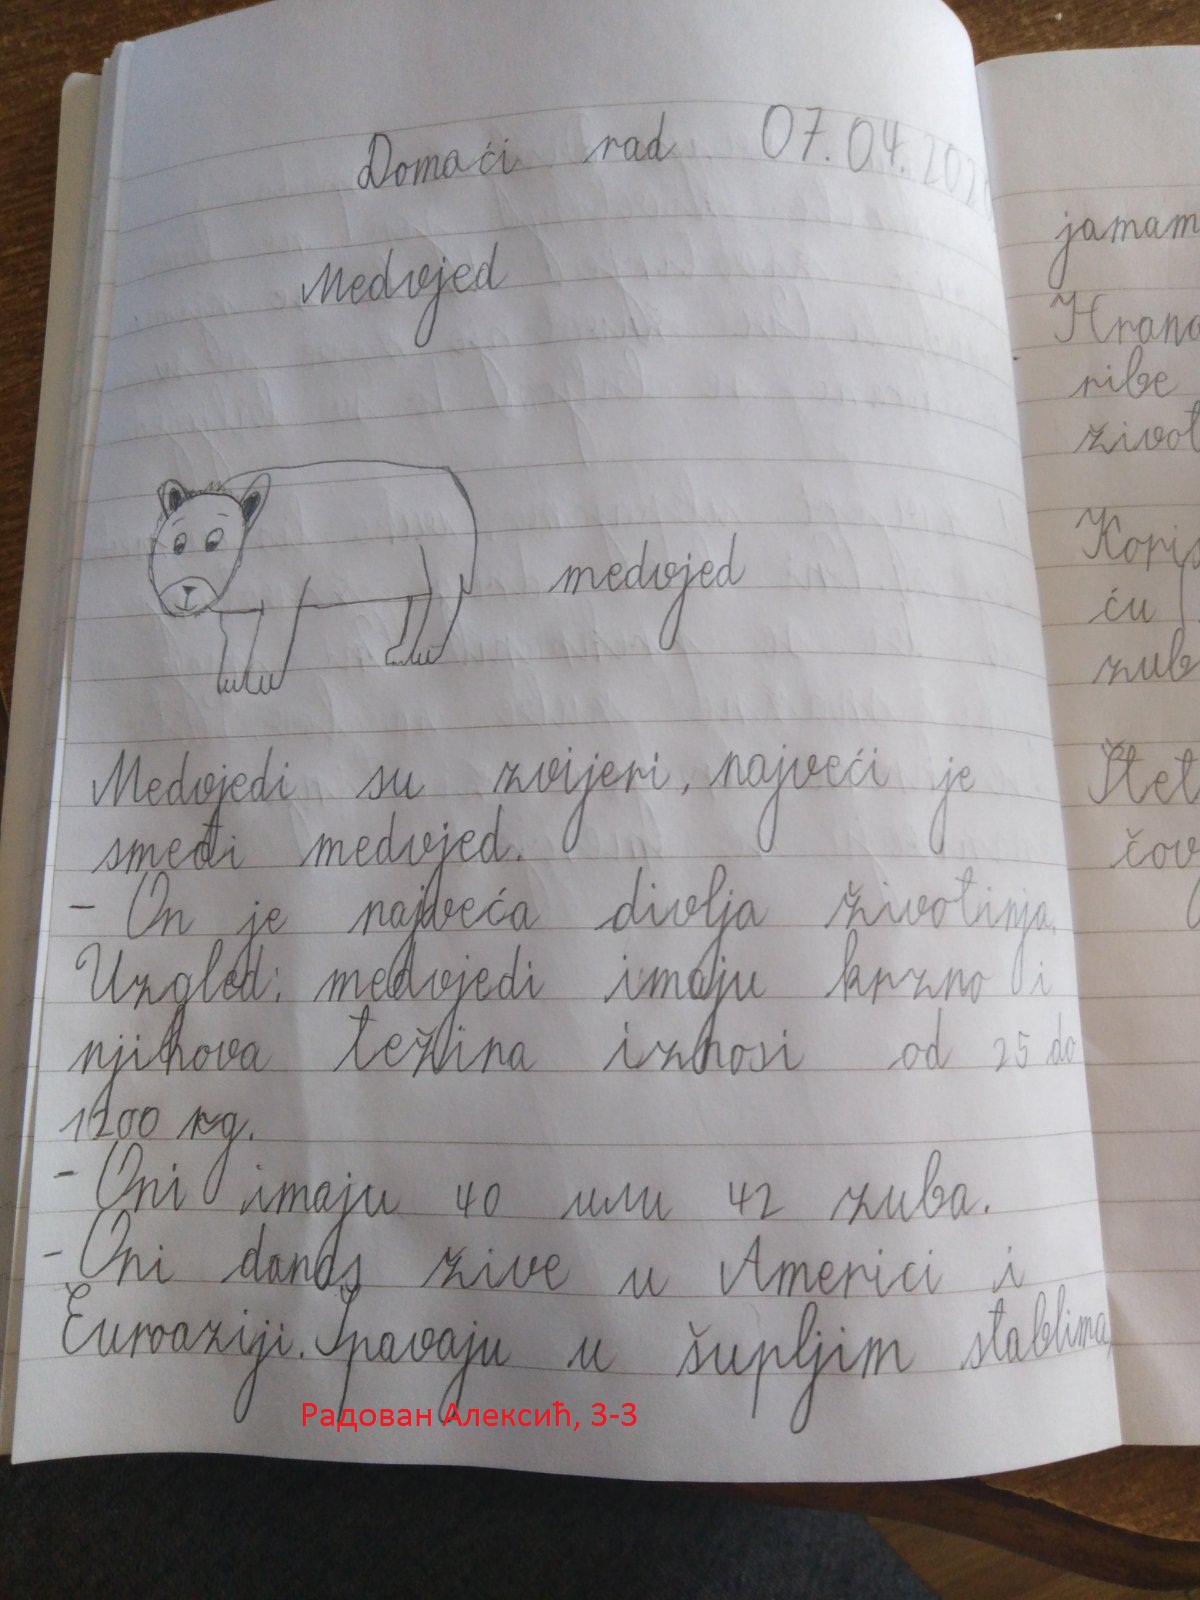 Domaći rad 07.04.2020
Medvjed
medvjed
Medvjedi su zvijeri, najveći je
smeđi medvjed.
- On je najveća divlja životinja.
Uzgled: medvjedi imaju krzno i
njihova težina iznosi od 25 do
1200 kg.
- Oni imaju 40 или 42 zuba.
- Oni danas žive u Americi i
Euroaziji. Spavaju u šupljim stablima,
Радован Алексић, 3-3
jamam
Hrana
ribe
život
Koris
ću
zub
Štet
čov